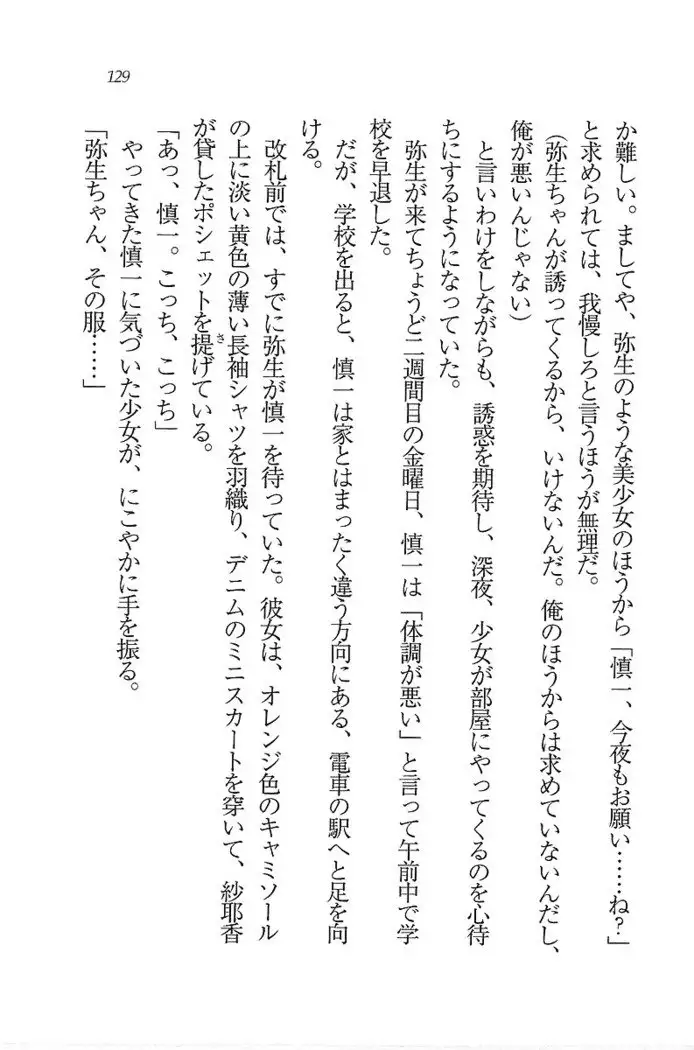 129
か難しい。ましてや、弥生のような美少女のほうから「慎一、今夜もお願い……ね？」
と求められては、我慢しろと言うほうが無理だ。
（弥生ちゃんが誘ってくるから、いけないんだ。俺のほうからは求めていないんだし、
俺が悪いんじゃない）
と言いわけをしながらも、誘惑を期待し、深夜、少女が部屋にやってくるのを心待
ちにするようになっていた。
弥生が来てちょうど二週間目の金曜日、慎一は「体調が悪い」と言って午前中で学
校を早退した。
だが、学校を出ると、慎一は家とはまったく違う方向にある、電車の駅へと足を向
ける。
改札前では、すでに弥生が慎一を待っていた。彼女は、オレンジ色のキャミソール
の上に淡い黄色の薄い長袖シャツを羽織り、デニムのミニスカートを穿いて、紗耶香
が貸したポシェットを提さげている。
「あっ、慎一。こっち、こっち」
やってきた慎一に気づいた少女が、にこやかに手を振る。
「弥生ちゃん、その服……」